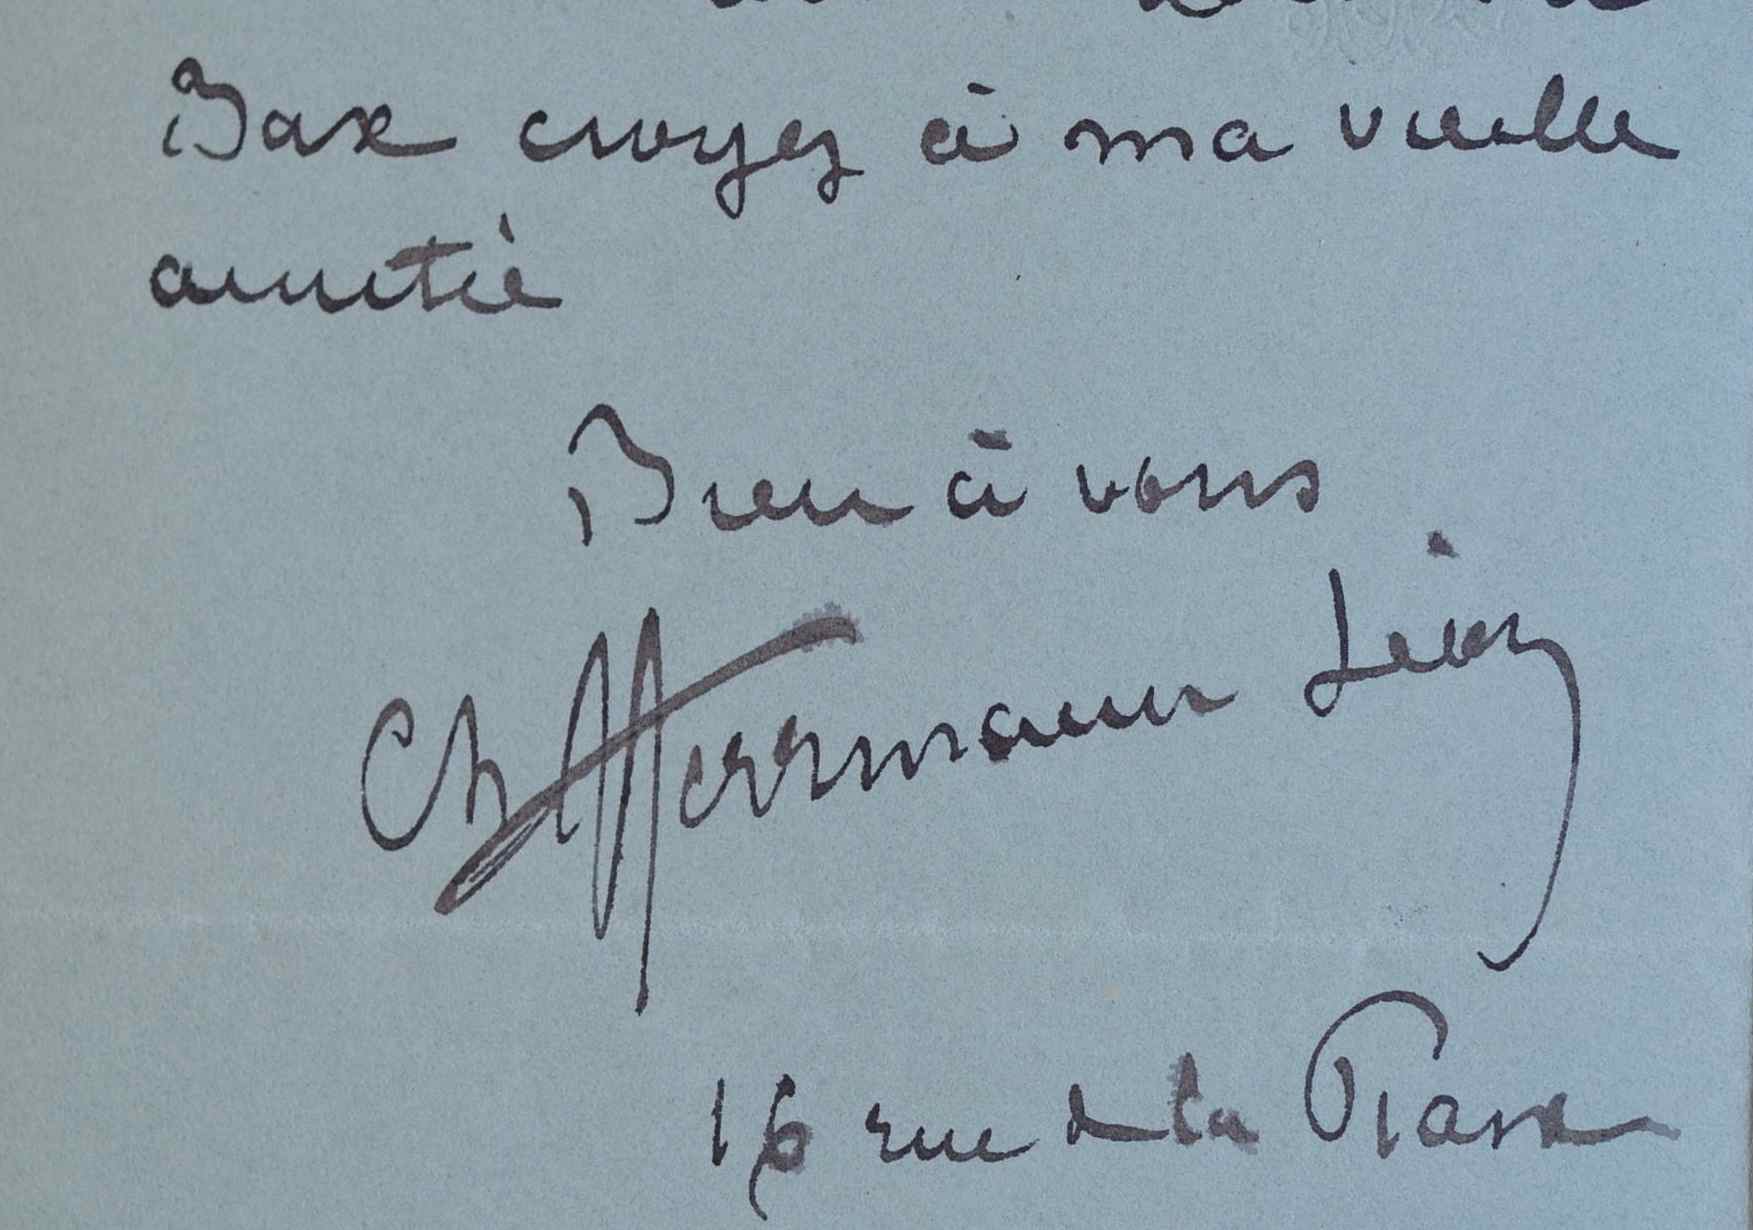 Bax croyez à ma vieille
amitié
Bien à vous
Ch Herrmann Léon
16 rue de la